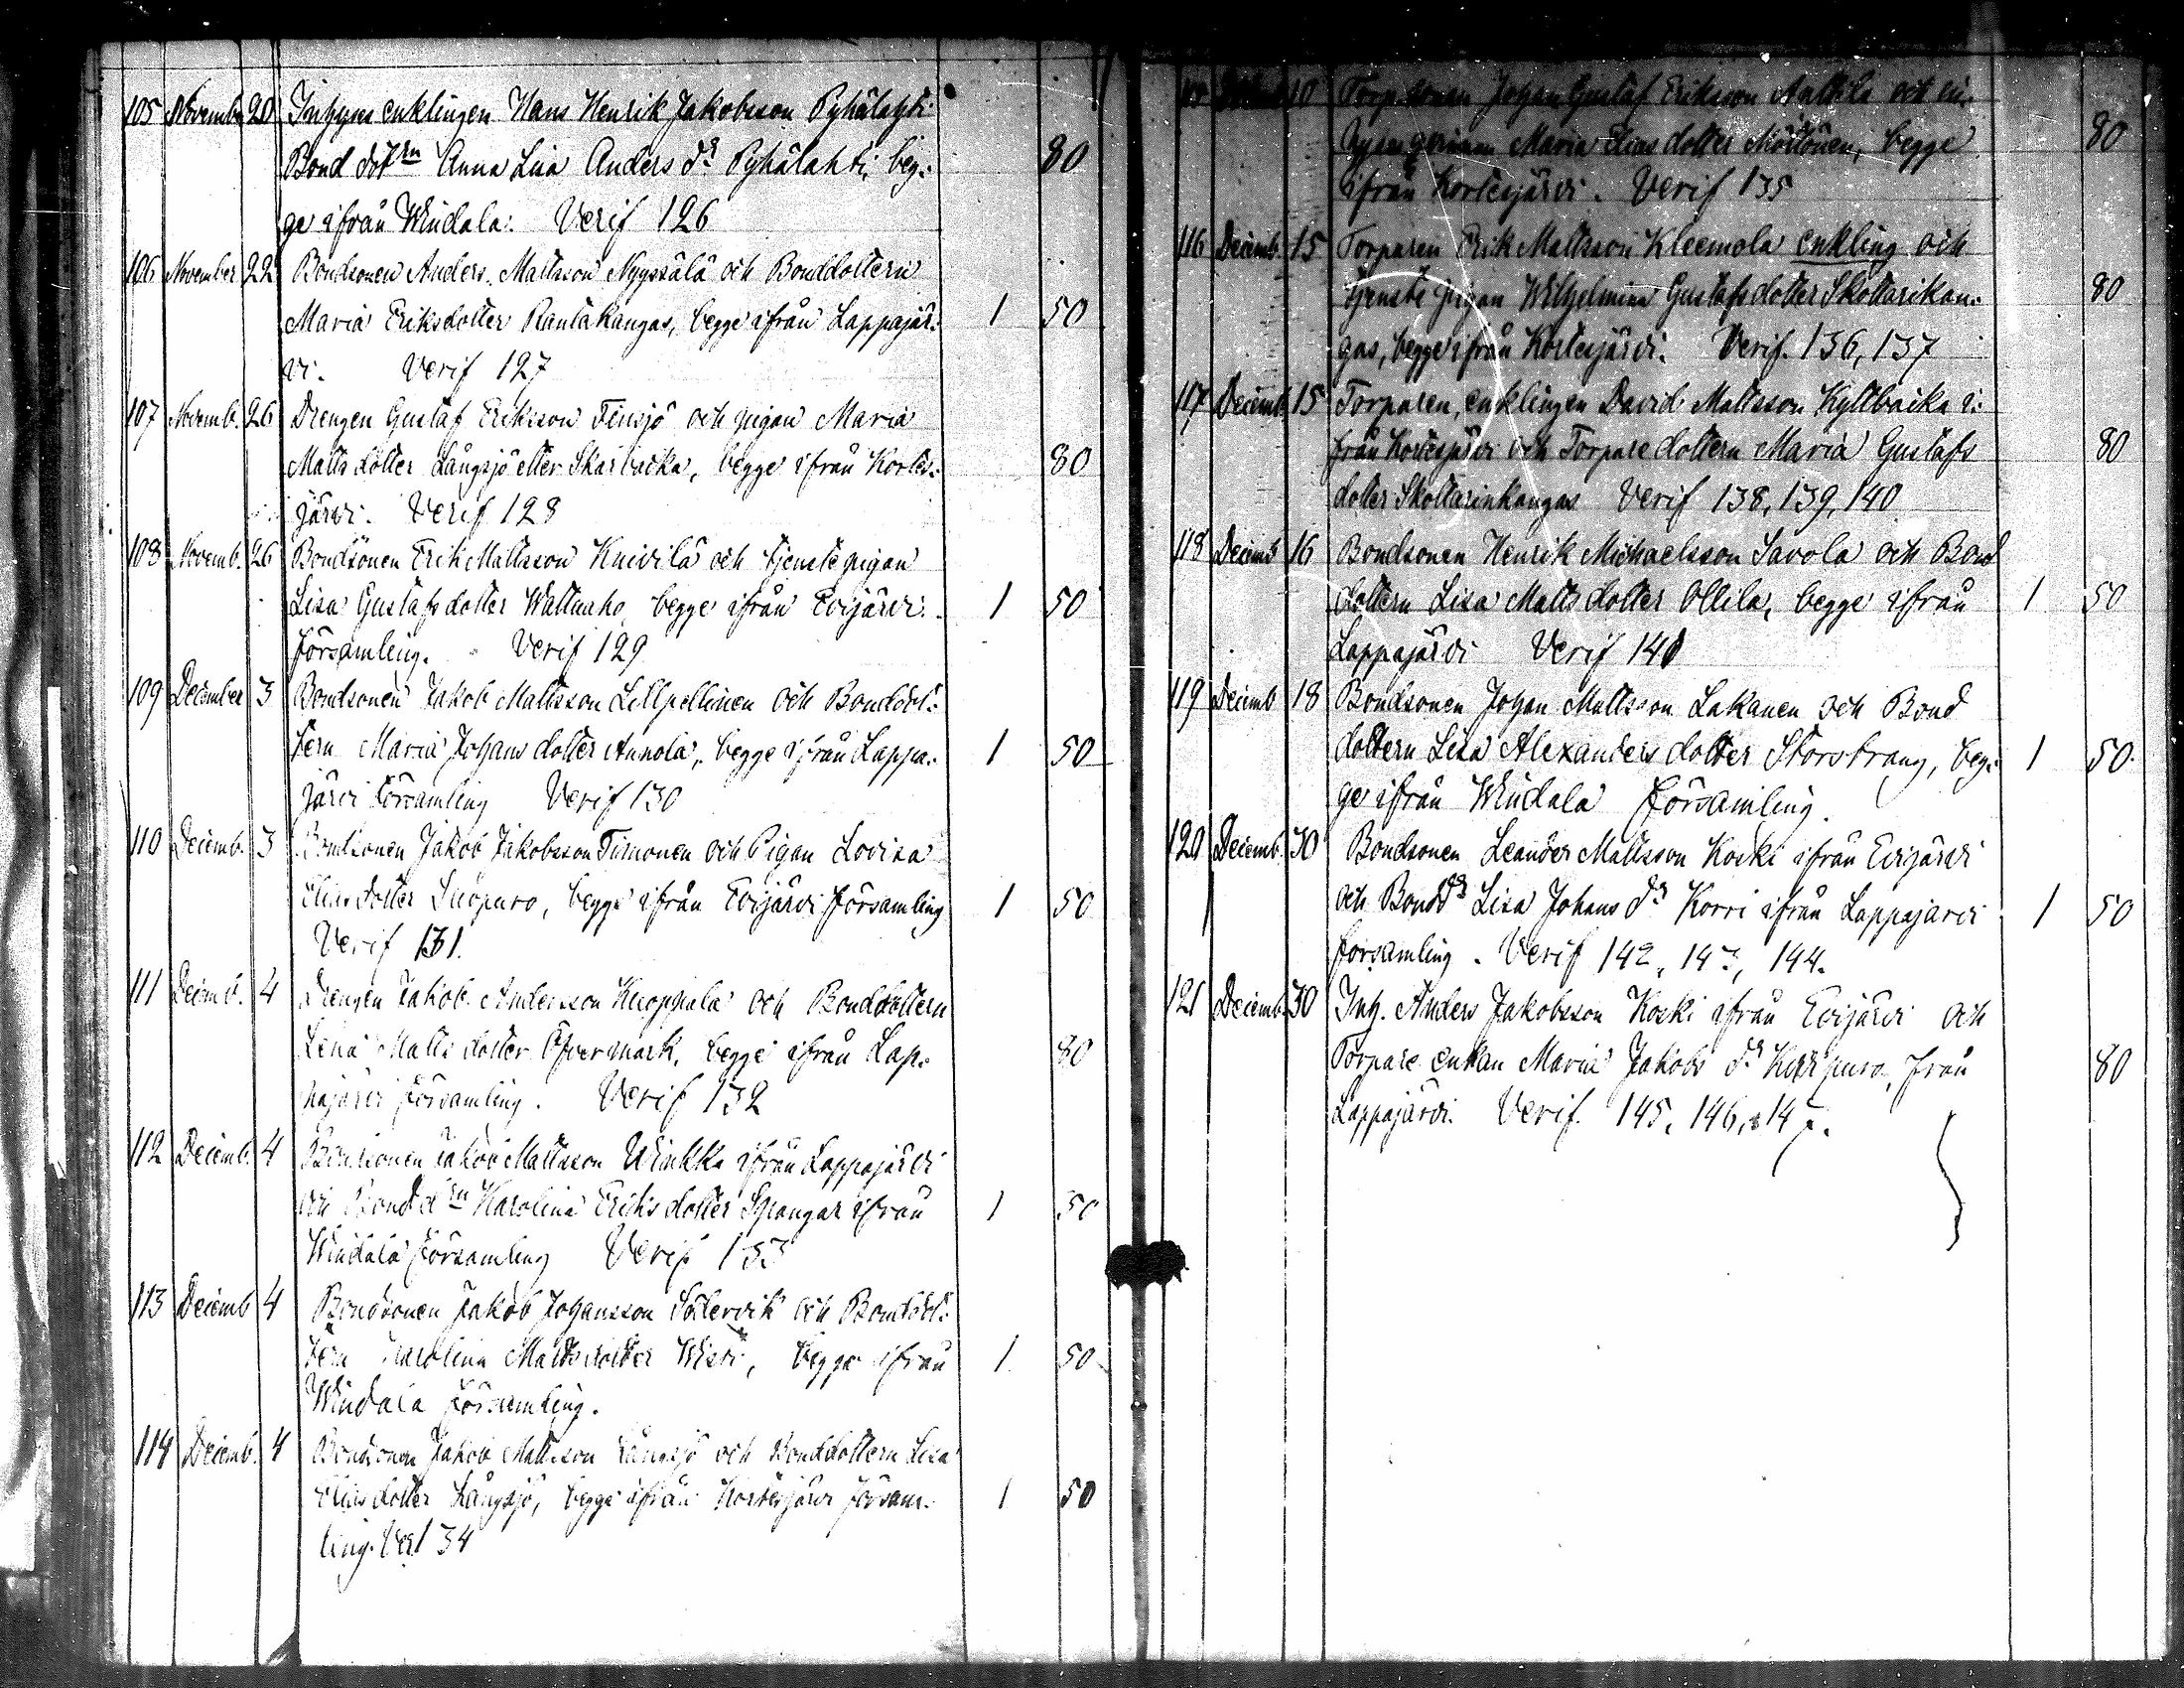 105 Novemb. 20 Inhyses enklingen Hans Henrik Jakobsson Pyhälahti
Bond dotrn Anna Lisa Anders dr Pyhälahti, beg: 80
ge ifrån Windala: Verif 126
106 November 22 Bondsonen Anders Mattsson Nyyssälä och Bonddottern
Maria Eriksdotter Rantakangas, begge ifrån Lappajär: 1 50
vi. Verif 127
107 Novemb. 26 Drengen Gustaf Eriksson Finsjö och pigan Maria
Matts dotter Långsjö eller Skarbacka, begge ifrån Kortes: 80
järvi. Verif 128
108 Novemb. 26 Bondsonen Erik Mattsson Knivilä och tjenstepigan
Lisa Gustafs dotter Wattuaho begge ifrån Evijärvi 1 50
församling. Verif 129
109 December 3 Bondsonen Jakob Mattsson Lillpellinen och Bonddot:
tern Maria Johans dotter Annola, begge ifrån Lappa: 1 50
järvi församling Verif 130
110 Decemb. 3 Bondsonen Jakob Jakobsson Timonen och Pigan Lovisa
Elias dotter Snöpuro, begge ifrån Evijärvi församling 1 50
Verif 131.
111 Decemb. 4 Drengen Jakob Andersson Knoppala och Bonddottern
Lena Matts dotter Öfvermark, begge ifrån Lap: 80
pajärvi församling. Verif 132
112 Decemb. 4 Bondsonen Jakob Mattsson Winkka ifrån Lappajärvi
och Bond drn Karolina Eriks dotter Spangar ifrån 1 50
Windala församling Verif 133
113 Decemb 4 Bondsonen Jakob Johansson Södervik och Bonddot:
tern Karolina Matts dotter Wisti, begge ifrån 1 50
Windala församling.
114 Decemb. 4 Bondsonen Jakob Mattsson Långsjö och Bonddottern Lisa
Elias dotter Långsjö, begge ifrån Kortesjärvi försam: 1 50
ling. Ver 134
10 Torp sonen Johan Gustaf Eriksson Anttila och in:
hyses qvinnan Maria Elias dotter Möttönen, begge 80
ifrån Kortesjärvi. Verif 135
116 Decemb. 15 Torparen Erik Mattsson Kleemola enkling och
tjenste pigan Wilhelmina Gustafs dotter Skottarikan: 80
gas, begge ifrån Kortesjärvi. Verif. 136, 137
117 Decemb. 15 Torparen, enklingen David Mattsson Kyttbacka i:
från Kortesjärvi och Torpare dottern Maria Gustafs 80
dotter Skottarinkangas Verif 138, 139, 140
118 Decemb 16 Bondsonen Henrik Michaelsson Savola och Bond
dottern Lisa Matts dotter Ollila, begge ifrån 1 50
Lappajärvi Verif 141
119 Decemb 18 Bondsonen Johan Mattsson Lakanen och Bond
dottern Lisa Alexanders dotter Storstrang, beg: 1 50
ge ifrån Windala församling.
120 Decemb. 30 Bondsonen Leander Mattsson Koski ifrån Evijärvi
och Bond dr Lisa Johans dr Korri ifrån Lappajärvi 1 50
församling. Verif 142, 143, 144.
121 Decemb. 30 Inh. Anders Jakobsson Koski ifrån Evijärvi och
Torpare enkan Maria Jakobs dr från 80
Lappajärvi. Verif. 145, 146, 147.